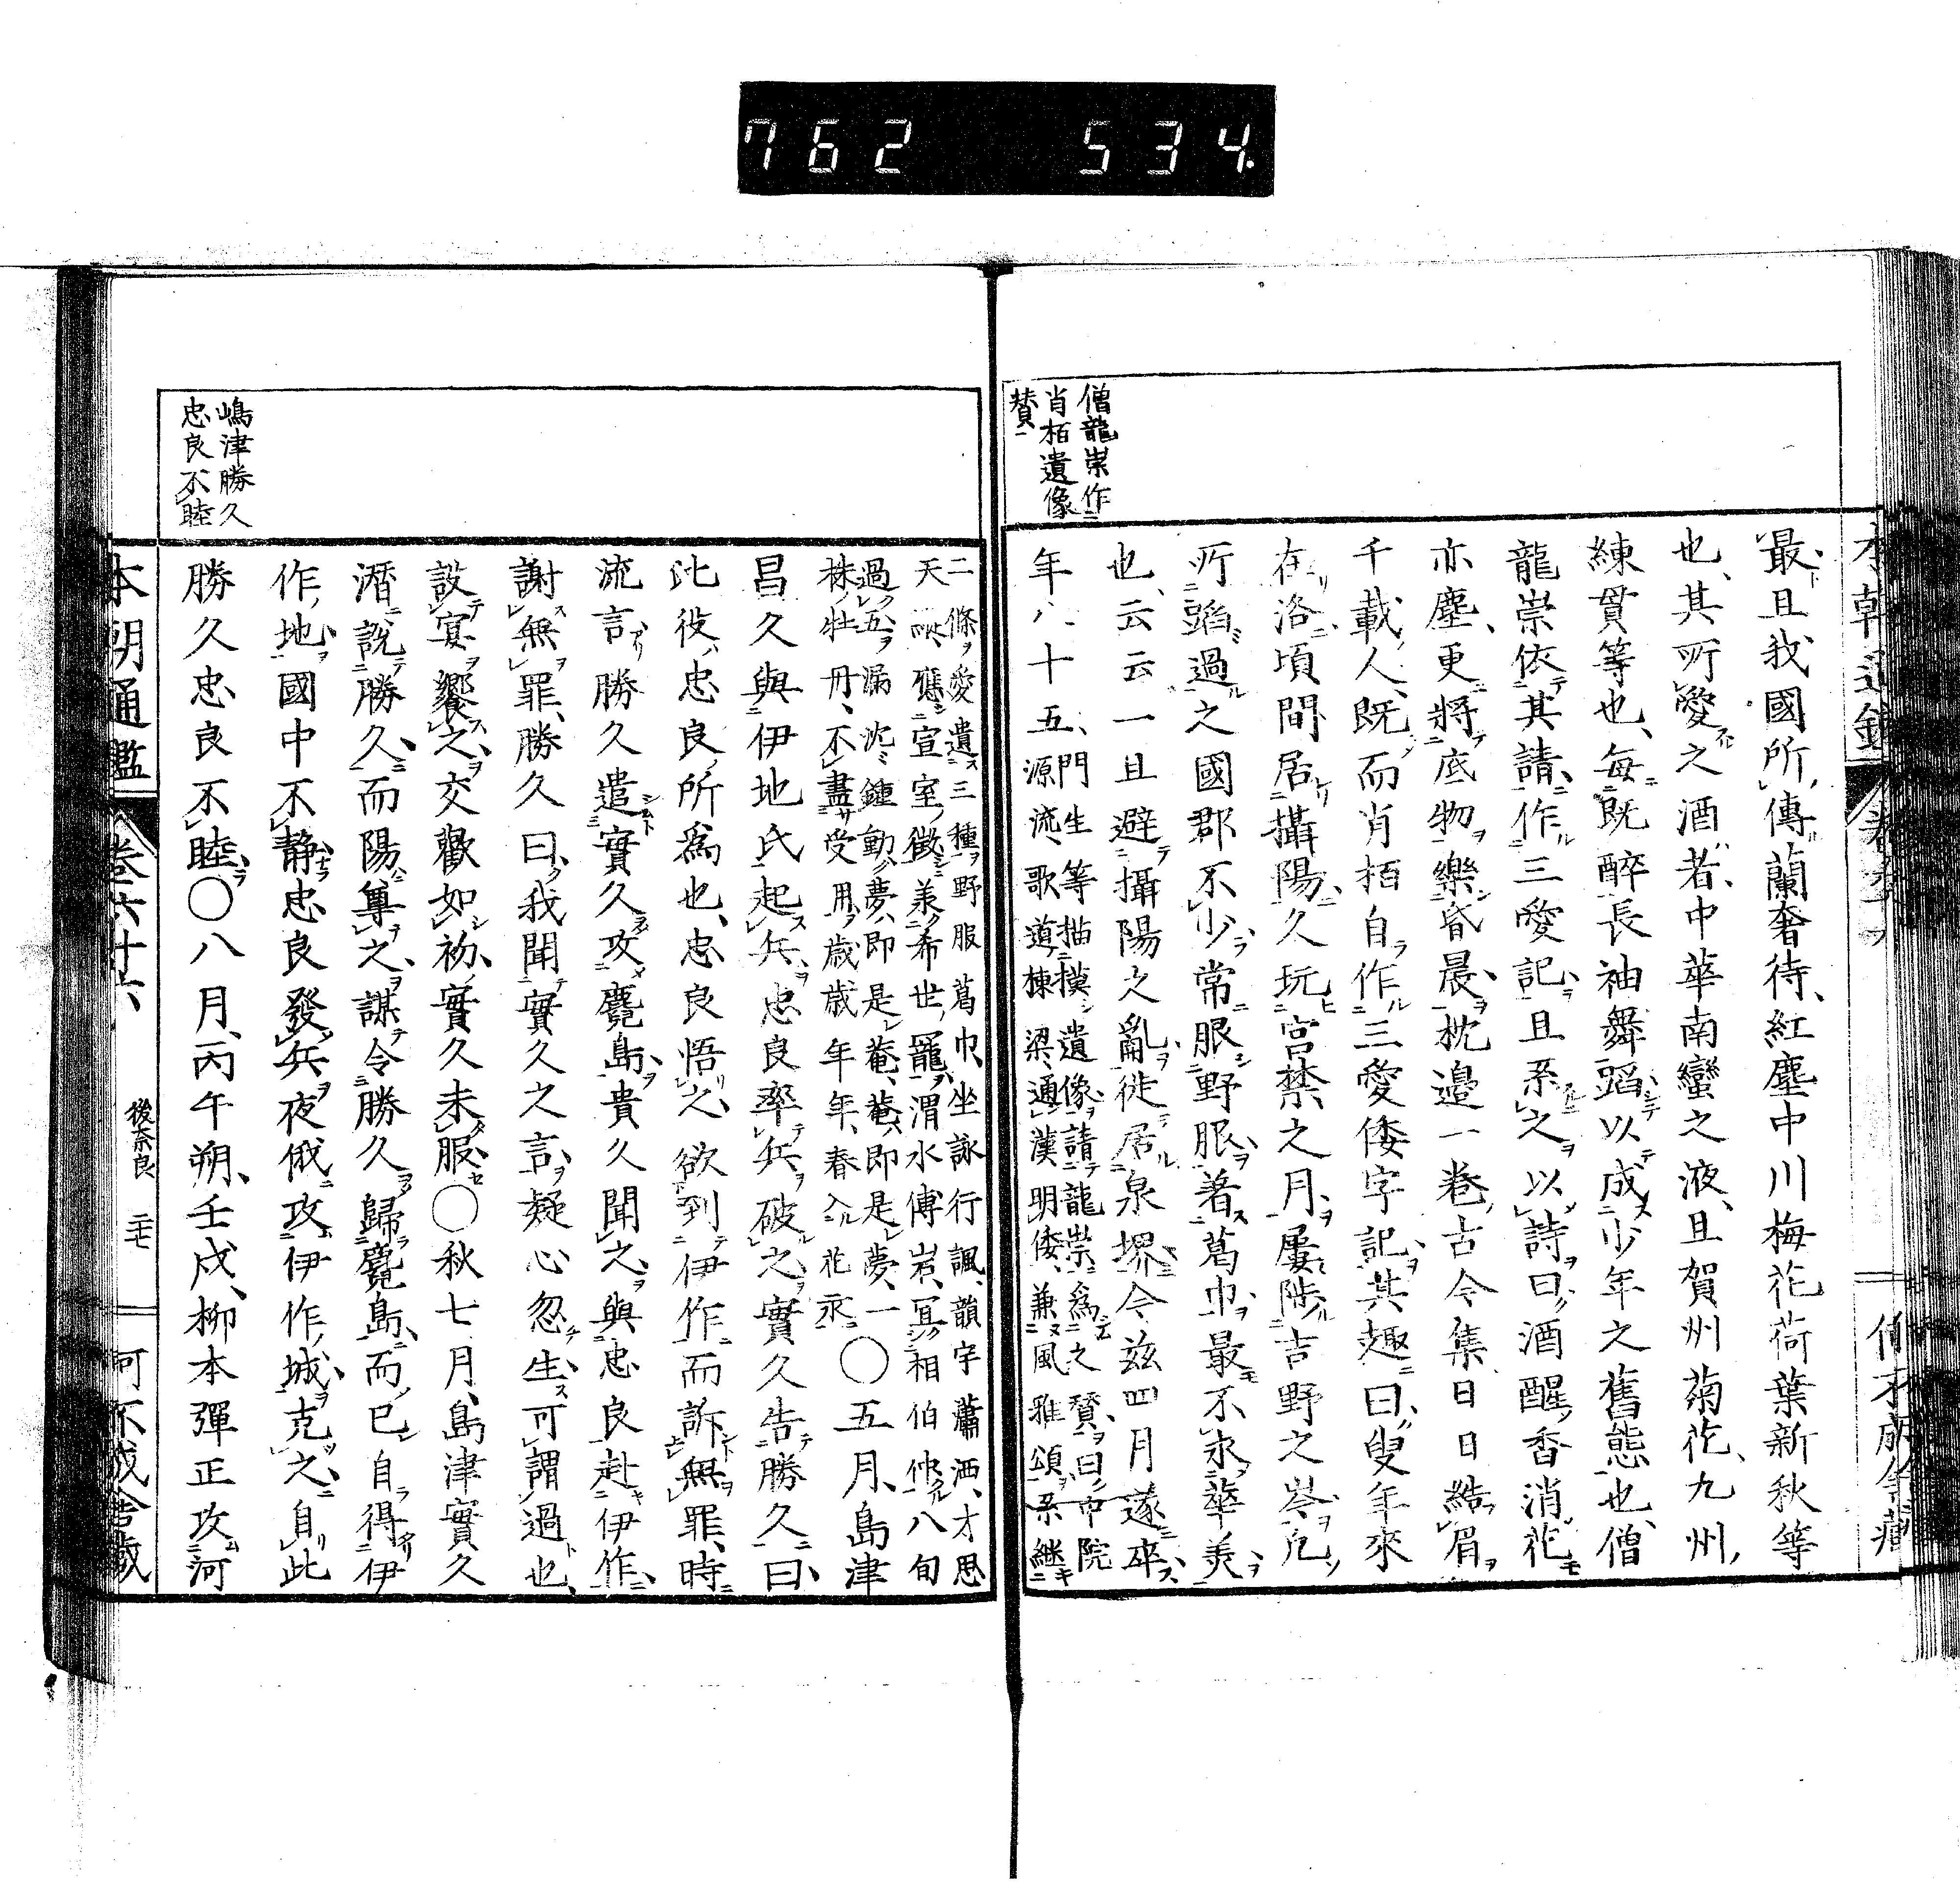 762 534.
僧龍崇作
肖栢遺像
賛
最且我國所傳蘭奢待紅塵中川梅花荷葉新秋等
也其所愛之酒若中華南蠻之液且賀州菊花九州
練貫等也每既醉長袖舞蹈以成少年之舊態也僧
龍崇依其請作三愛記且系之以詩曰酒醒香消花
亦塵更將底物樂昏晨枕邉一卷古今集日日結眉
千載人既而肖栢自作三愛倭字記其趣曰叟年來
在洛頃間居攝陽久玩宮禁之月屢陟吉野之岑凡
所蹈過之國郡不少常服野服著葛巾最不求華美
也云云一旦避攝陽之亂徙居泉堺今茲四月遂卒
年八十五門生等描摸遺像請龍崇為之賛曰中院
源流歌道棟梁通漢明倭兼風雅頌系継
二條愛遺三種野服葛巾坐詠行諷韻字蕭洒才思
天應宣室徴羕希世罷渭水傅岩冥相伯仲八旬
過五漏沈鍾動夢即是菴菴即是夢一
株牡丹不盡受用歳歳年年春入花永
○五月島津
昌久與伊地氏起兵忠良率兵破之實久告勝久曰
此役忠良所為也忠良悟之欲到伊作而訴無罪時
流言勝久遣實久攻麑島貴久聞之與忠良赴伊作
謝無罪勝久曰我聞實久之言疑心忽生可謂過也
設宴饗之交歡如初實久未服○秋七月島津實久
潛說勝久而陽尊之謀令勝久歸麑島而已自得伊
作地國中不靜忠良發兵夜俄攻伊作城克之自此
勝久忠良不睦○八月丙午朔壬戌柳本彈正攻河
嶋津勝久
忠良不睦
本朝通鑑 卷六十六 後奈良 二十七